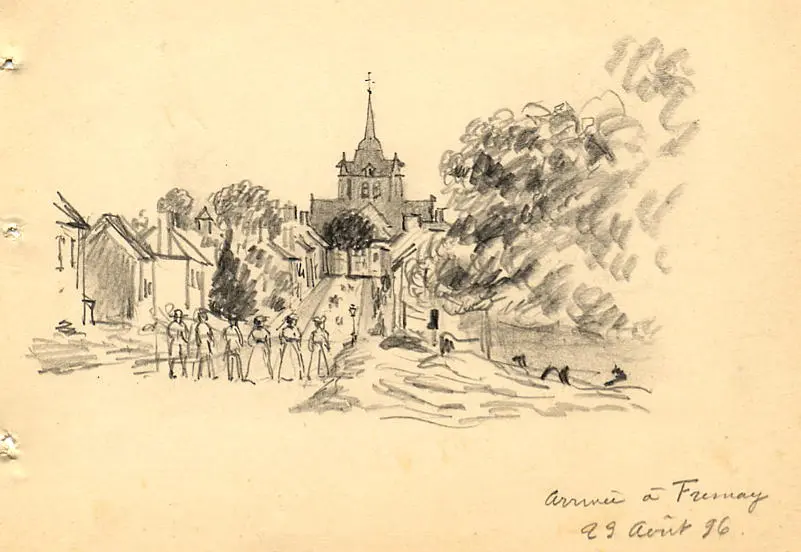 Arrivée à Fresnay
29 Août 96.